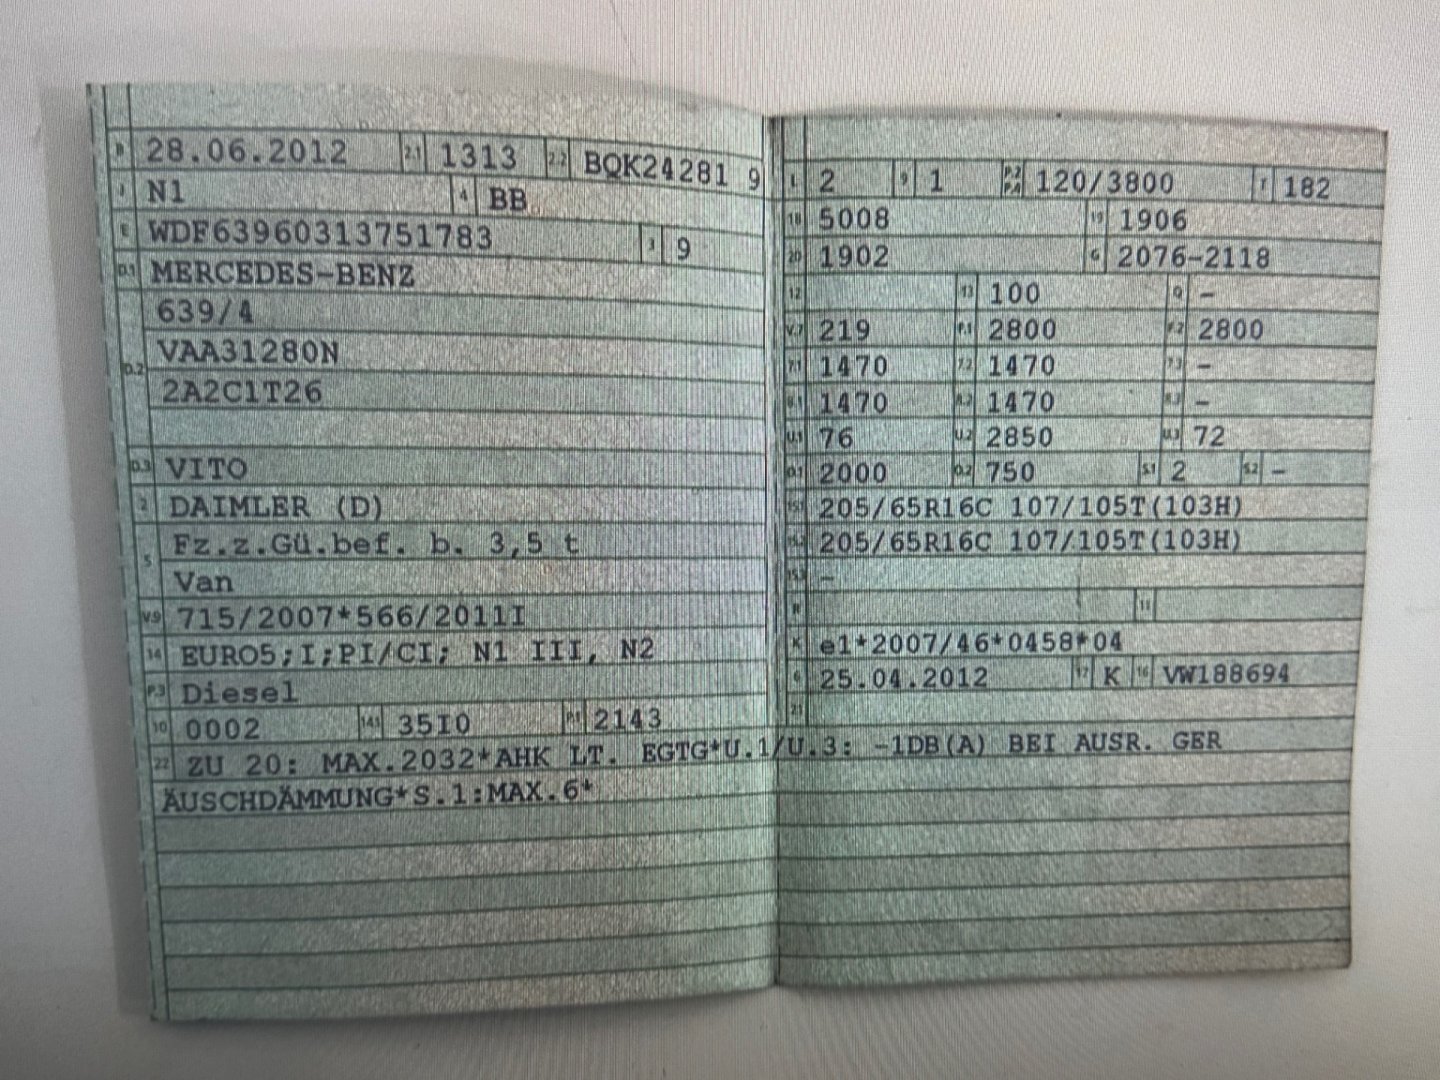 B 28.06.2012 2.1 1313 2.2 BQK24281 9
J N1 4 BB
E WDF63960313751783 3 9
D.1 MERCEDES-BENZ
639/4
D.2 VAA31280N
2A2C1T26
D.3 VITO
2 DAIMLER (D)
5 Fz.z.Gü.bef. b. 3,5 t
Van
V.9 715/2007*566/2011I
14 EURO5;I;PI/CI; N1 III, N2
P.3 Diesel
10 0002 14.1 35I0 P.1 2143
L 2 9 1 P.2 P.4 120/3800 T 182
18 5008 19 1906
20 1902 G 2076-2118
12 13 100 Q -
V.7 219 F.1 2800 F.2 2800
7.1 1470 7.2 1470 7.3 -
8.1 1470 8.2 1470 8.3 -
U.1 76 U.2 2850 U.3 72
O.1 2000 O.2 750 S.1 2 S.2 -
15.1 205/65R16C 107/105T(103H)
15.2 205/65R16C 107/105T(103H)
15.3 -
R 11
K e1*2007/46*0458*04
6 25.04.2012 17 K 16 VW188694
21
22 ZU 20: MAX.2032*AHK LT. EGTG*U.1/U.3: -1DB(A) BEI AUSR. GER
ÄUSCHDÄMMUNG*S.1:MAX.6*